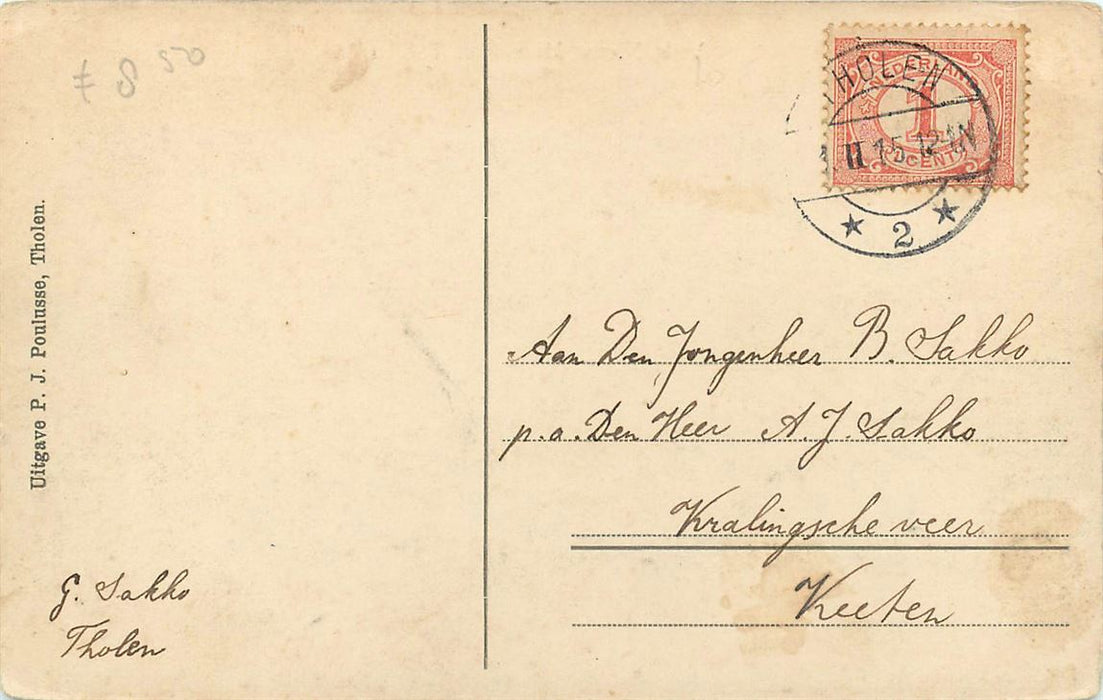 8 50
Uitgave P. J. Poulusse, Tholen.
THOLEN
1
CENT
2
Aan Den Jongenheer B. Sakko
p.a. Den Heer A. J. Sakko
Kralingsche veer
Keeten
G. Sakko
Tholen